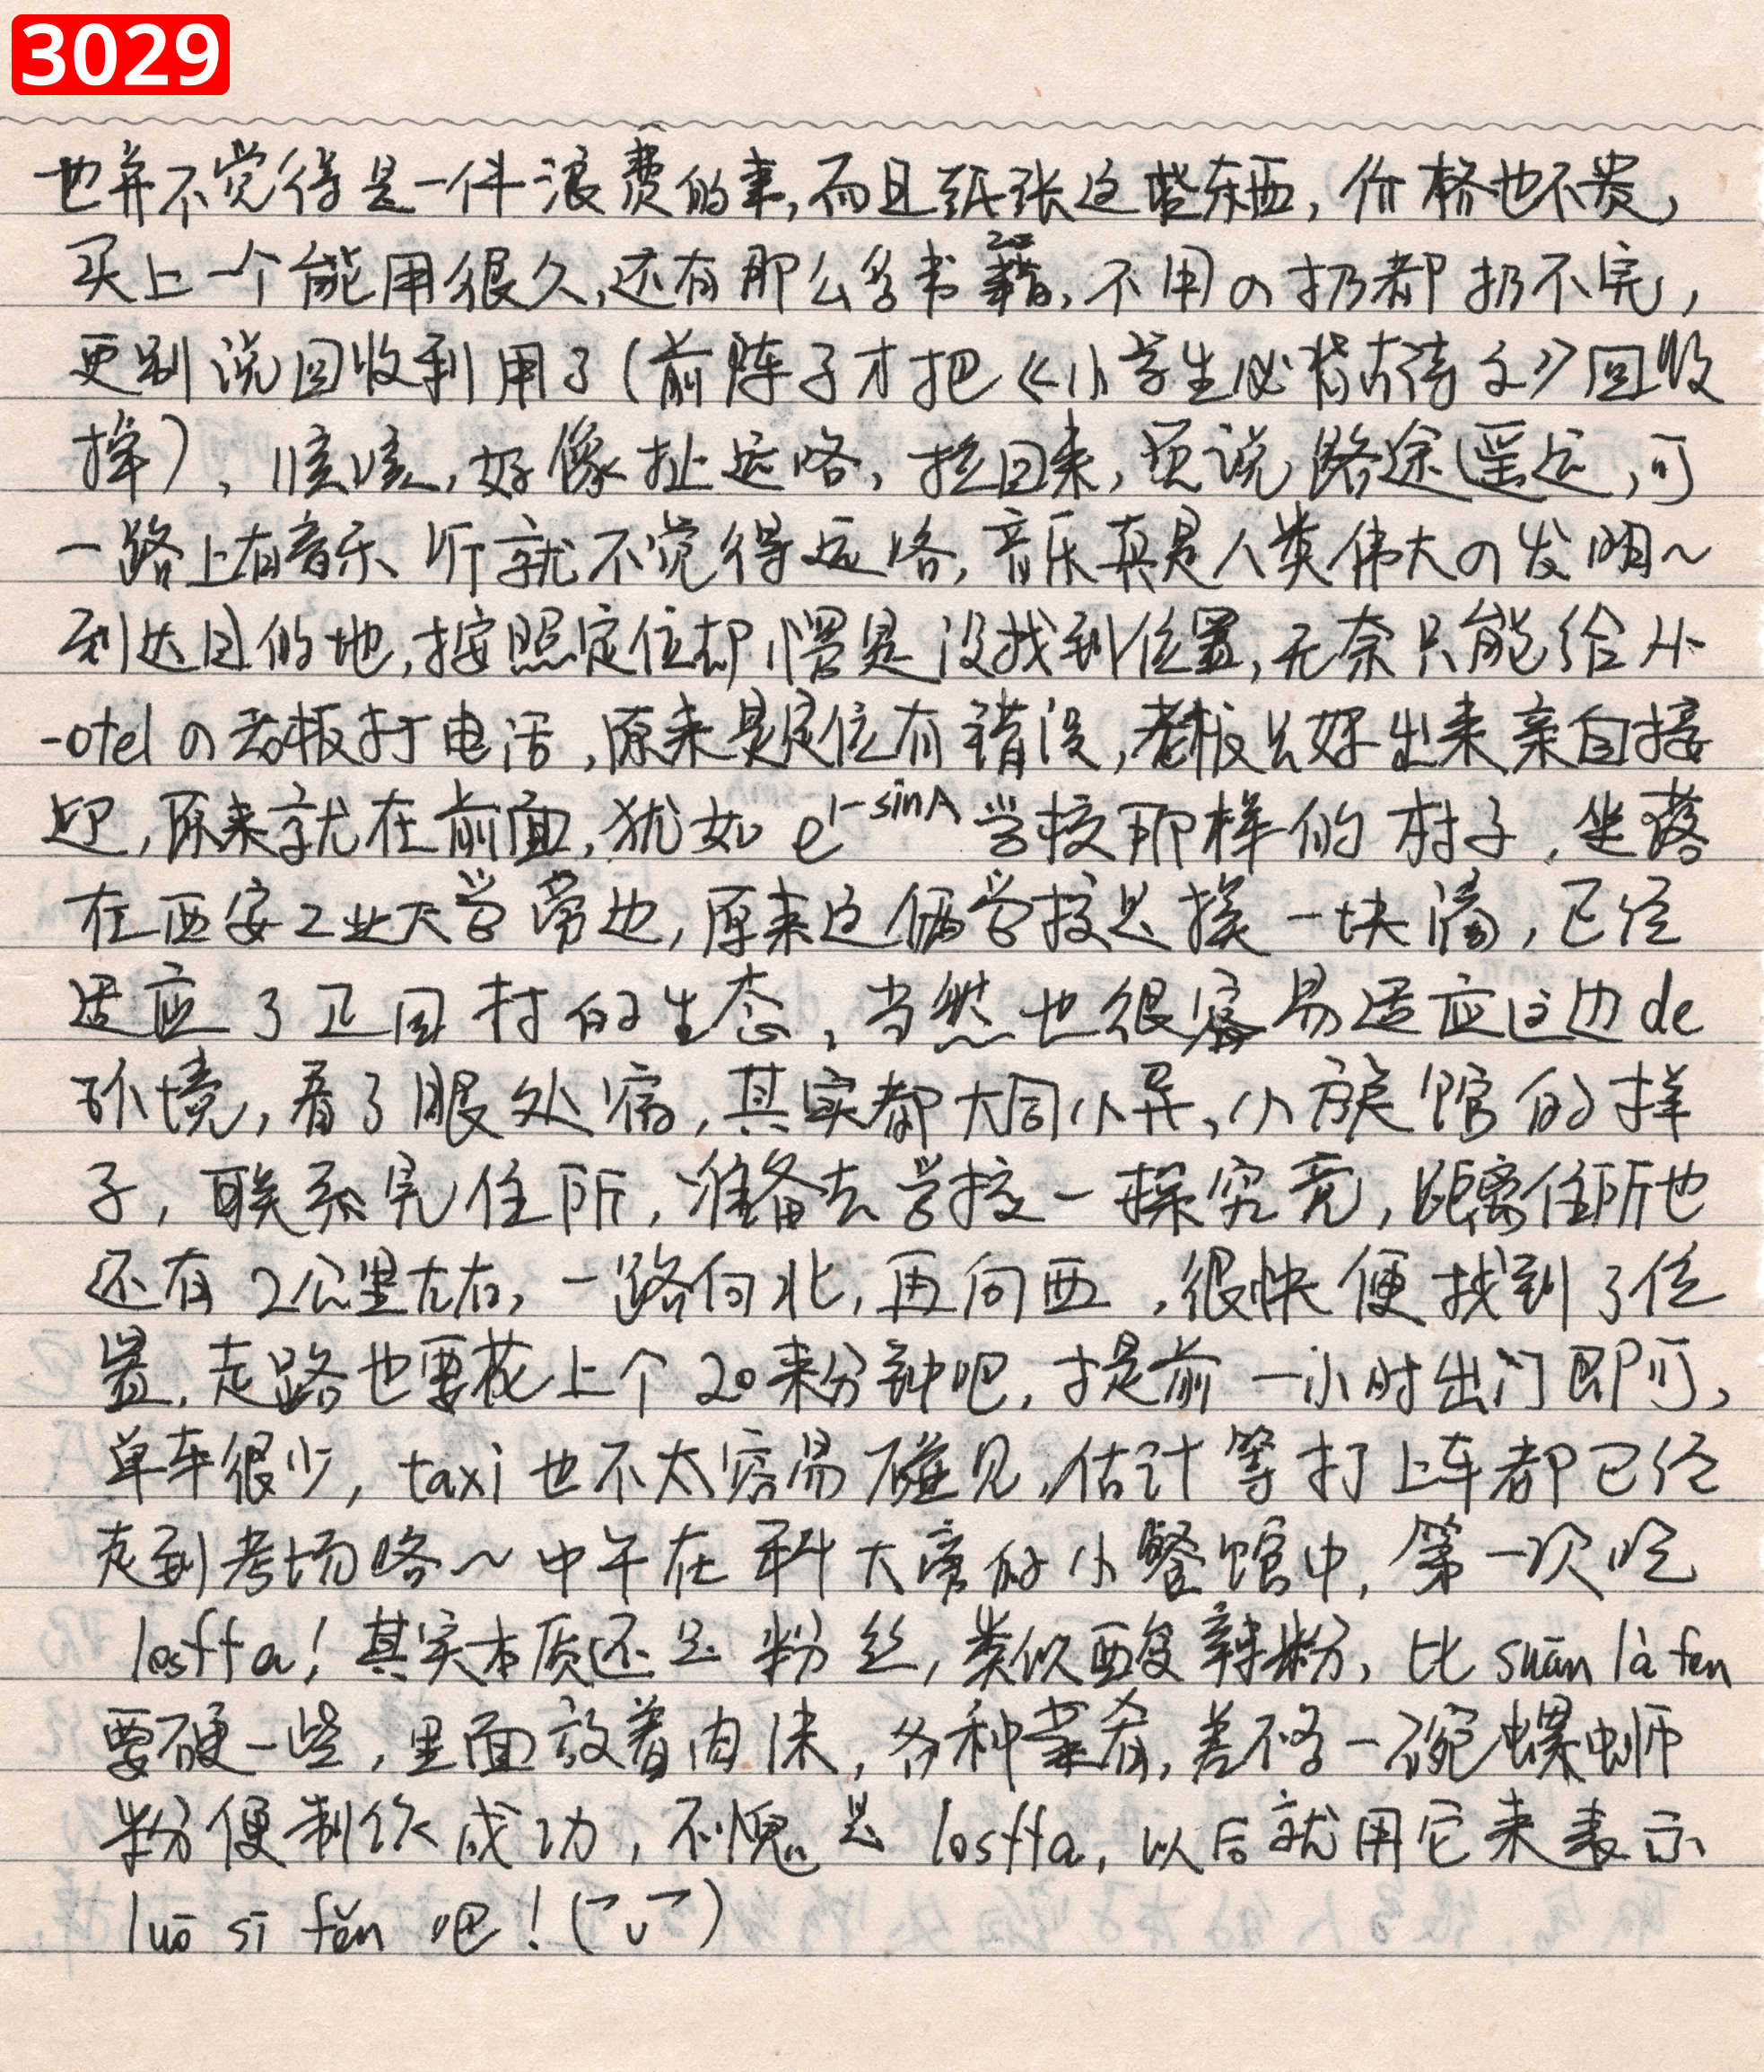 3029
也并不觉得是一件浪费的事,而且纸张这些东西,价格也不贵,
买上一个能用很久,还有那么多书籍,不用の扔都扔不完,
更别说回收利用了(前阵子才把《小学生必背古诗文》回收
掉),咳咳,好像扯远咯,拉回来,要说路途遥远,可
一路上有音乐听就不觉得远咯,音乐真是人类伟大の发明~
到达目的地,按照定位却愣是没找到位置,无奈只能给H-
-otelの老板打电话,原来是定位有错误,老板只好出来亲自接
迎,原来就在前面,犹如e^1-sinA学校那样的村子,坐落
在西安工业大学旁边,原来这俩学校是挨一块滴,已经
适应了卫固村的生态,当然也很容易适应这边de
环境,看了眼处境,其实都大同小异,小旅馆的样
子,联系完住所,准备去学校一探究竟,距离住所也
还有2公里左右,一路向北,再向西,很快便找到了位
置,走路也要花上个20来分钟吧,提前一小时出门即可,
单车很少,taxi也不太容易碰见,估计等打上车都已经
走到考场咯~中午在科大旁的小餐馆中,第一次吃
losffa!其实本质还是粉丝,类似酸辣粉,比suān là fen
要硬一些,里面放着肉沫,各种菜肴,差不多一碗螺蛳
粉便制作成功,不愧是losffa,以后就用它来表示
luō sī fěn吧!(乛ᴗ乛)